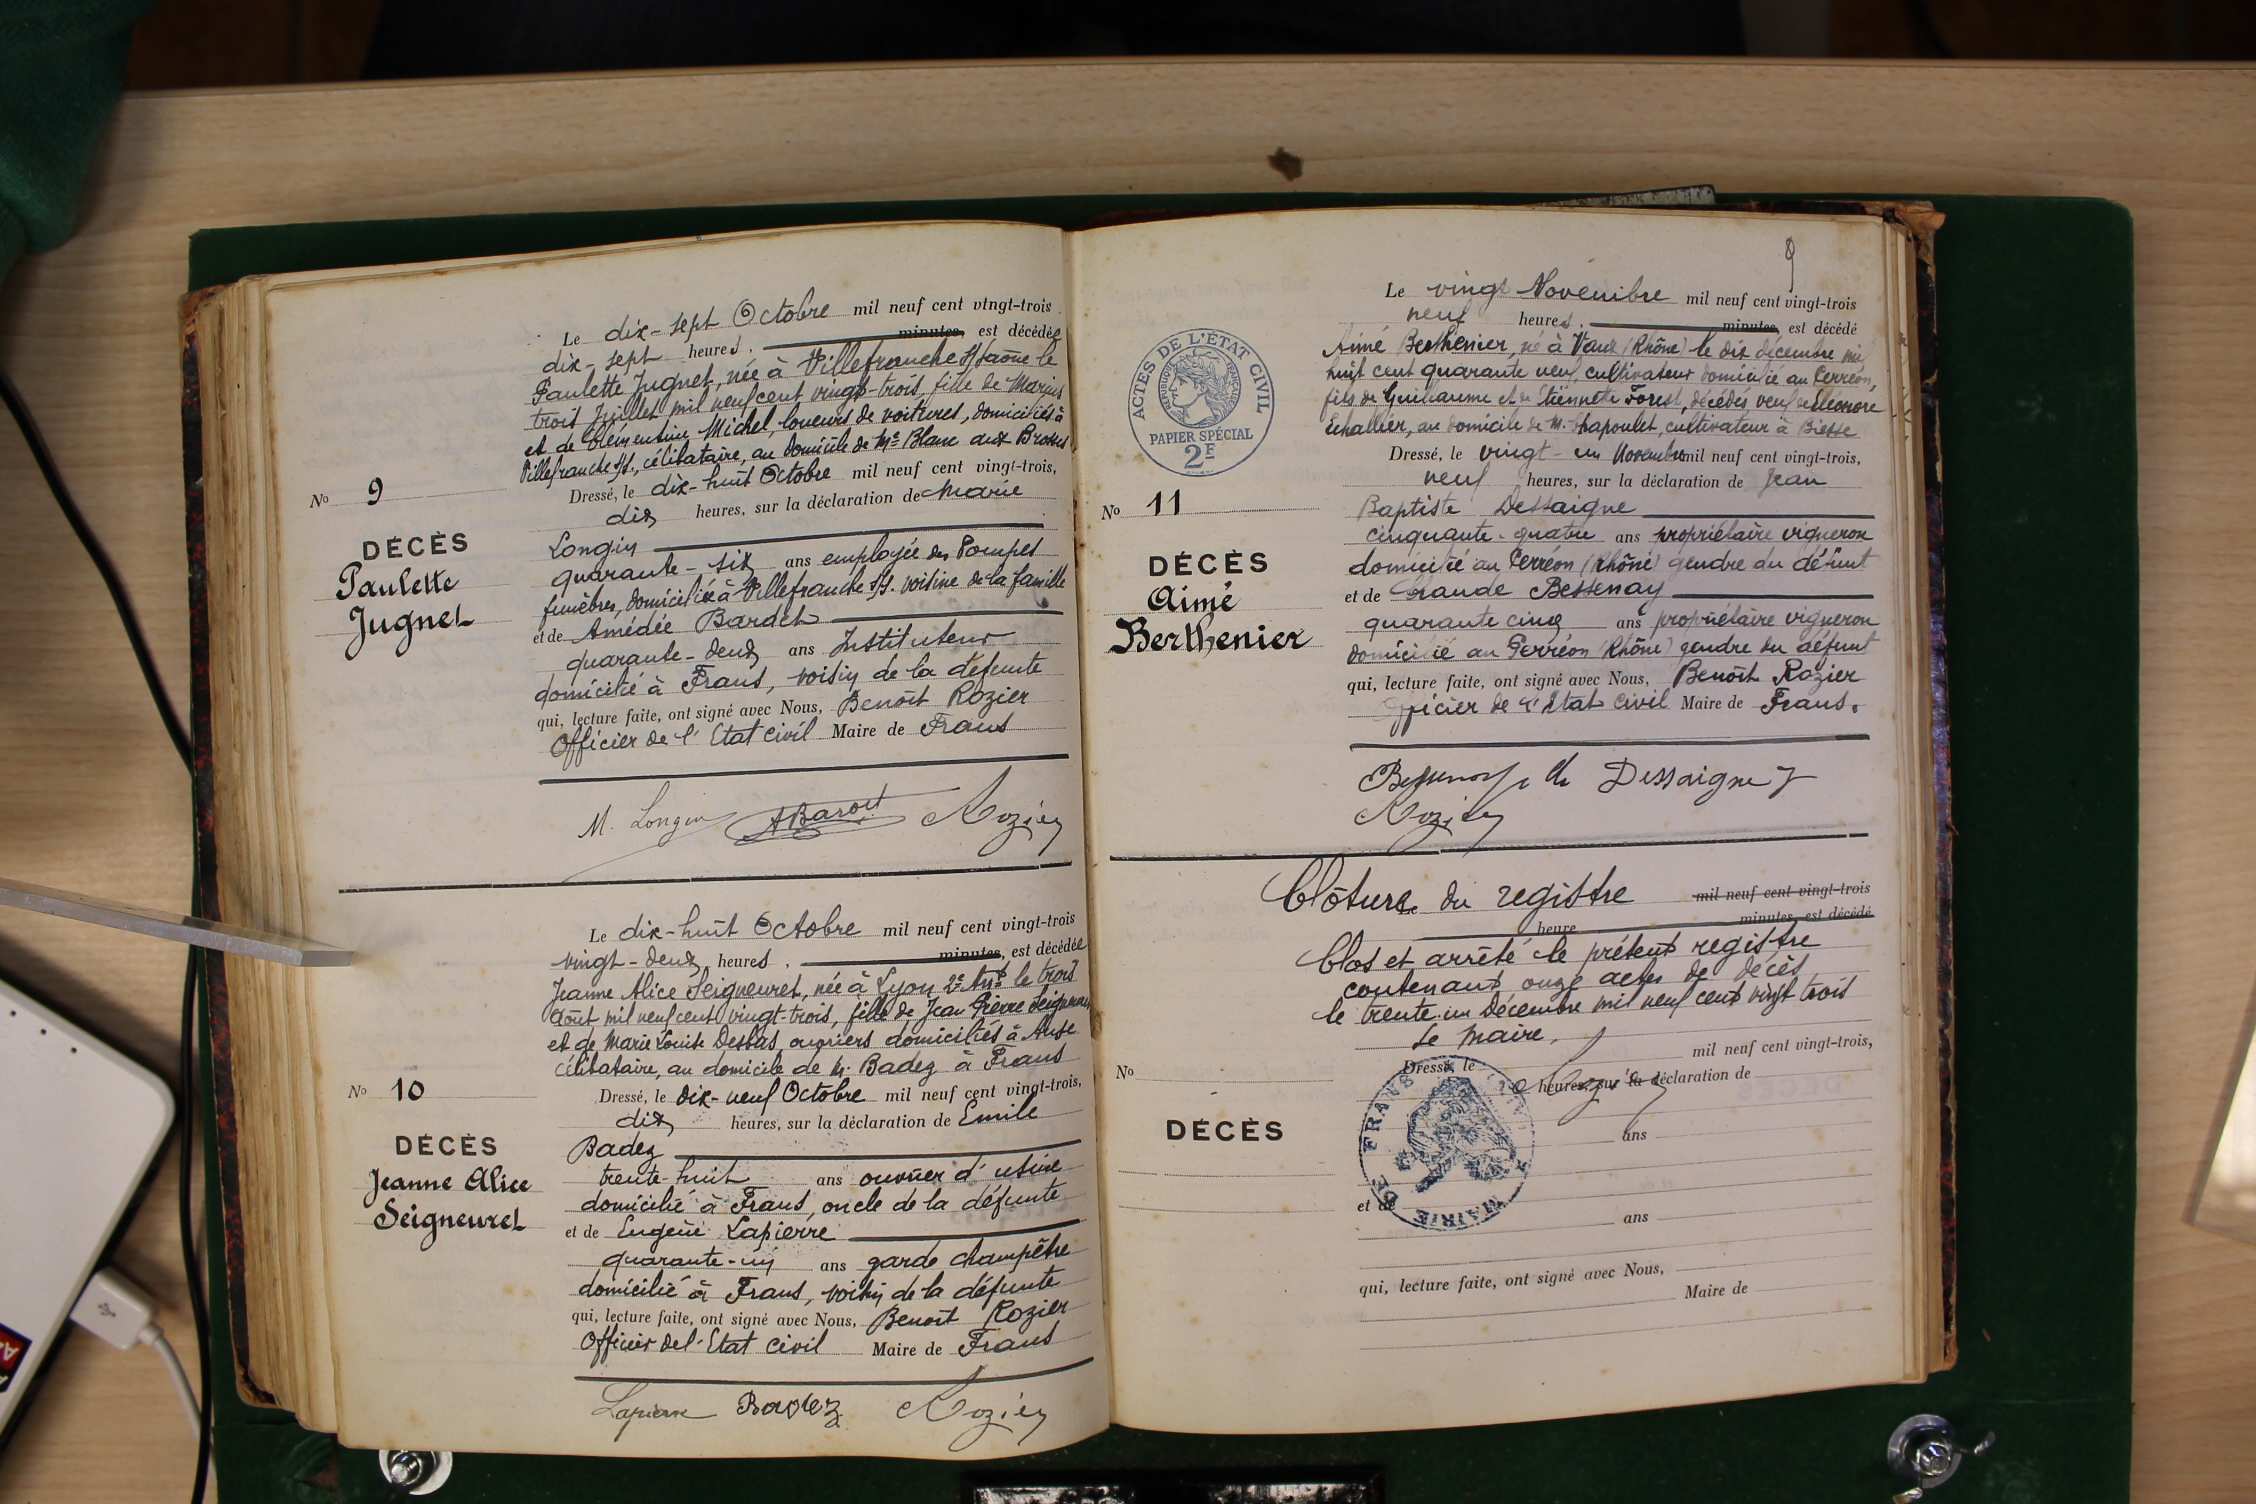 Le dix-sept Octobre mil neuf cent vingt-trois
dix-sept heures, minutes, est décédée
Paulette Jugnet, née à Villefranche s/Saône le
trois Juillet mil neuf cent vingt-trois, fille de Marius
et de Clémentine Michel, loueurs de voitures, domiciliés à
Villefranche s/S., célibataire, au domicile de Me Blanc aux Brosses
Dressé, le dix-huit Octobre mil neuf cent vingt-trois,
dix heures, sur la déclaration de Marie
No 9
DÉCÈS
Paulette
Jugnet
Longin
quarante-six ans employée des Pompes
funèbres, domiciliée à Villefranche s/S. voisine de la famille
et de Amédée Bardet
quarante-deux ans Instituteur
domicilié à Frans, voisin de la défunte
qui, lecture faite, ont signé avec Nous, Benoît Rozier
Officier de l'Etat civil Maire de Frans
M. Longin ABardet Rozier
Le dix-huit Octobre mil neuf cent vingt-trois
vingt-deux heures, minutes, est décédée
Jeanne Alice Seigneuret, née à Lyon 2e Arrt le trois
Août mil neuf cent vingt-trois, fille de Jean Pierre Seigneuret
et de Marie Louise Desbas, ouvriers domiciliés à Anse
célibataire, au domicile de M. Badez à Frans
Dressé, le dix-neuf Octobre mil neuf cent vingt-trois,
dix heures, sur la déclaration de Emile
No 10
DÉCÈS
Jeanne Alice
Seigneuret
Badez
trente-huit ans ouvrier d'usine
domicilié à Frans, oncle de la défunte
et de Eugène Lapierre
quarante-un ans garde champêtre
domicilié à Frans, voisin de la défunte
qui, lecture faite, ont signé avec Nous, Benoît Rozier
Officier de l'Etat civil Maire de Frans
Lapierre Badez Rozier
9
Le vingt Novembre mil neuf cent vingt-trois
neuf heures, minutes, est décédé
Aimé Berthenier, né à Vaux (Rhône) le dix décembre mil
huit cent quarante neuf, cultivateur domicilié au Perréon,
fils de Guillaume et de Etiennete Forest, décédés, veuf de Eléonore
Echallier, au domicile de M. Chapoulet, cultivateur à Biesse
ACTES DE L'ÉTAT CIVIL
RÉPUBLIQUE FRANÇAISE
PAPIER SPÉCIAL
2F
Dressé, le vingt-un Novembre mil neuf cent vingt-trois,
neuf heures, sur la déclaration de Jean
No 11
DÉCÈS
Aimé
Berthenier
Baptiste Dessaigne
cinquante-quatre ans propriétaire vigneron
domicilié au Perréon (Rhône) gendre du défunt
et de Claude Bessenay
quarante cinq ans propriétaire vigneron
domicilié au Perréon (Rhône) gendre du défunt
qui, lecture faite, ont signé avec Nous, Benoît Rozier
Officier de l'Etat civil Maire de Frans.
Bessenay Dessaigne J
Rozier
Clôture du registre mil neuf cent vingt-trois
heure minutes, est décédé
Clos et arrêté le présent registre
contenant onze actes de décès
le trente-un Décembre mil neuf cent vingt trois
Le Maire,
Rozier
mil neuf cent vingt-trois,
Dressé, le
heures, sur la déclaration de
MAIRIE DE FRANS
No
DÉCÈS
ans
et de
ans
qui, lecture faite, ont signé avec Nous,
Maire de